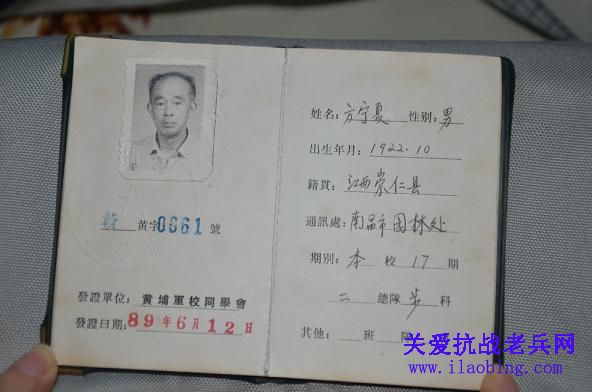 赣 黄字0061號
發證單位: 黄埔軍校同學會
發證日期: 89年6月12日
姓名: 方宁夏 性别: 男
出生年月: 1922.10
籍貫: 江西崇仁县
通訊處: 南昌市园林处
期别: 本 校 17 期
二 總隊 步 科
其他: 班 隊
关爱抗战老兵网
www.ilaobing.com